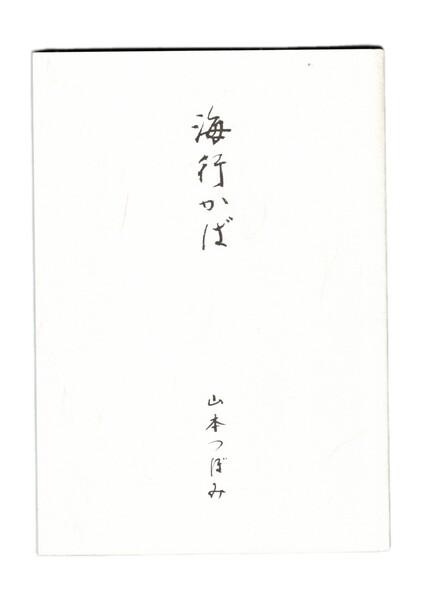 海行かば
山本つぼみ